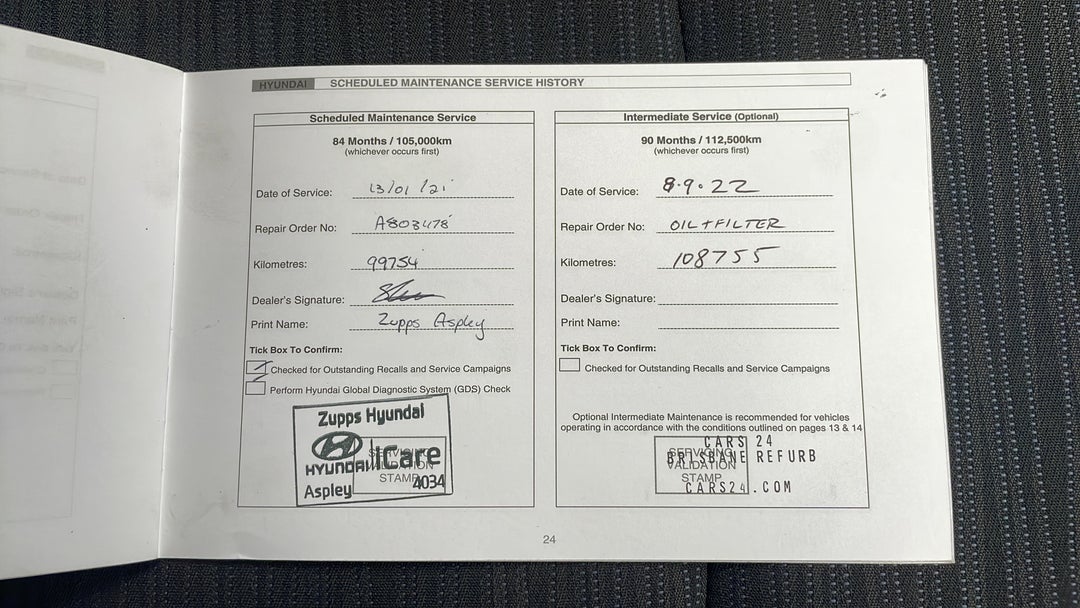 HYUNDAI SCHEDULED MAINTENANCE SERVICE HISTORY
Scheduled Maintenance Service
84 Months / 105,000km
(whichever occurs first)
Date of Service: 13/01/21
Repair Order No: A803478
Kilometres: 99754
Dealer's Signature:
Print Name: Zupps Aspley
Tick Box To Confirm:
Checked for Outstanding Recalls and Service Campaigns
Perform Hyundai Global Diagnostic System (GDS) Check
Zupps Hyundai
HYUNDAI iCare
Aspley 4034
SERVICING
VALIDATION
STAMP
Intermediate Service (Optional)
90 Months / 112,500km
(whichever occurs first)
Date of Service: 8.9.22
Repair Order No: OIL+FILTER
Kilometres: 108755
Dealer's Signature:
Print Name:
Tick Box To Confirm:
Checked for Outstanding Recalls and Service Campaigns
Optional Intermediate Maintenance is recommended for vehicles
operating in accordance with the conditions outlined on pages 13 & 14
CARS 24
BRISBANE REFURB
CARS24.COM
SERVICING
VALIDATION
STAMP
24